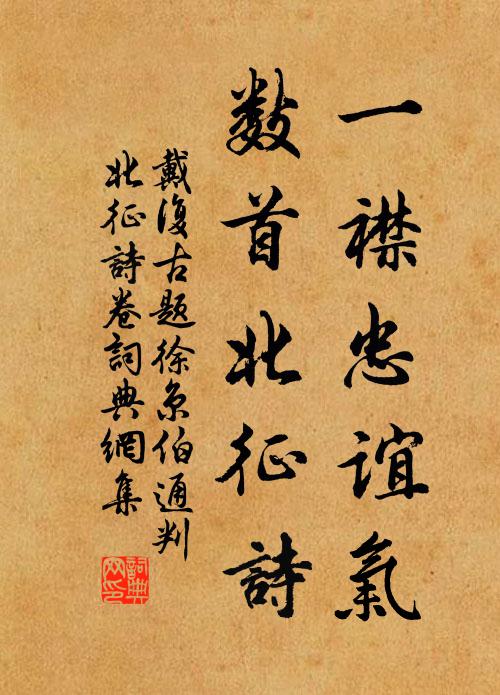 一襟忠誼氣
数首北征詩
戴復古題徐京伯通判
北征詩卷詞典網集
詞典網印